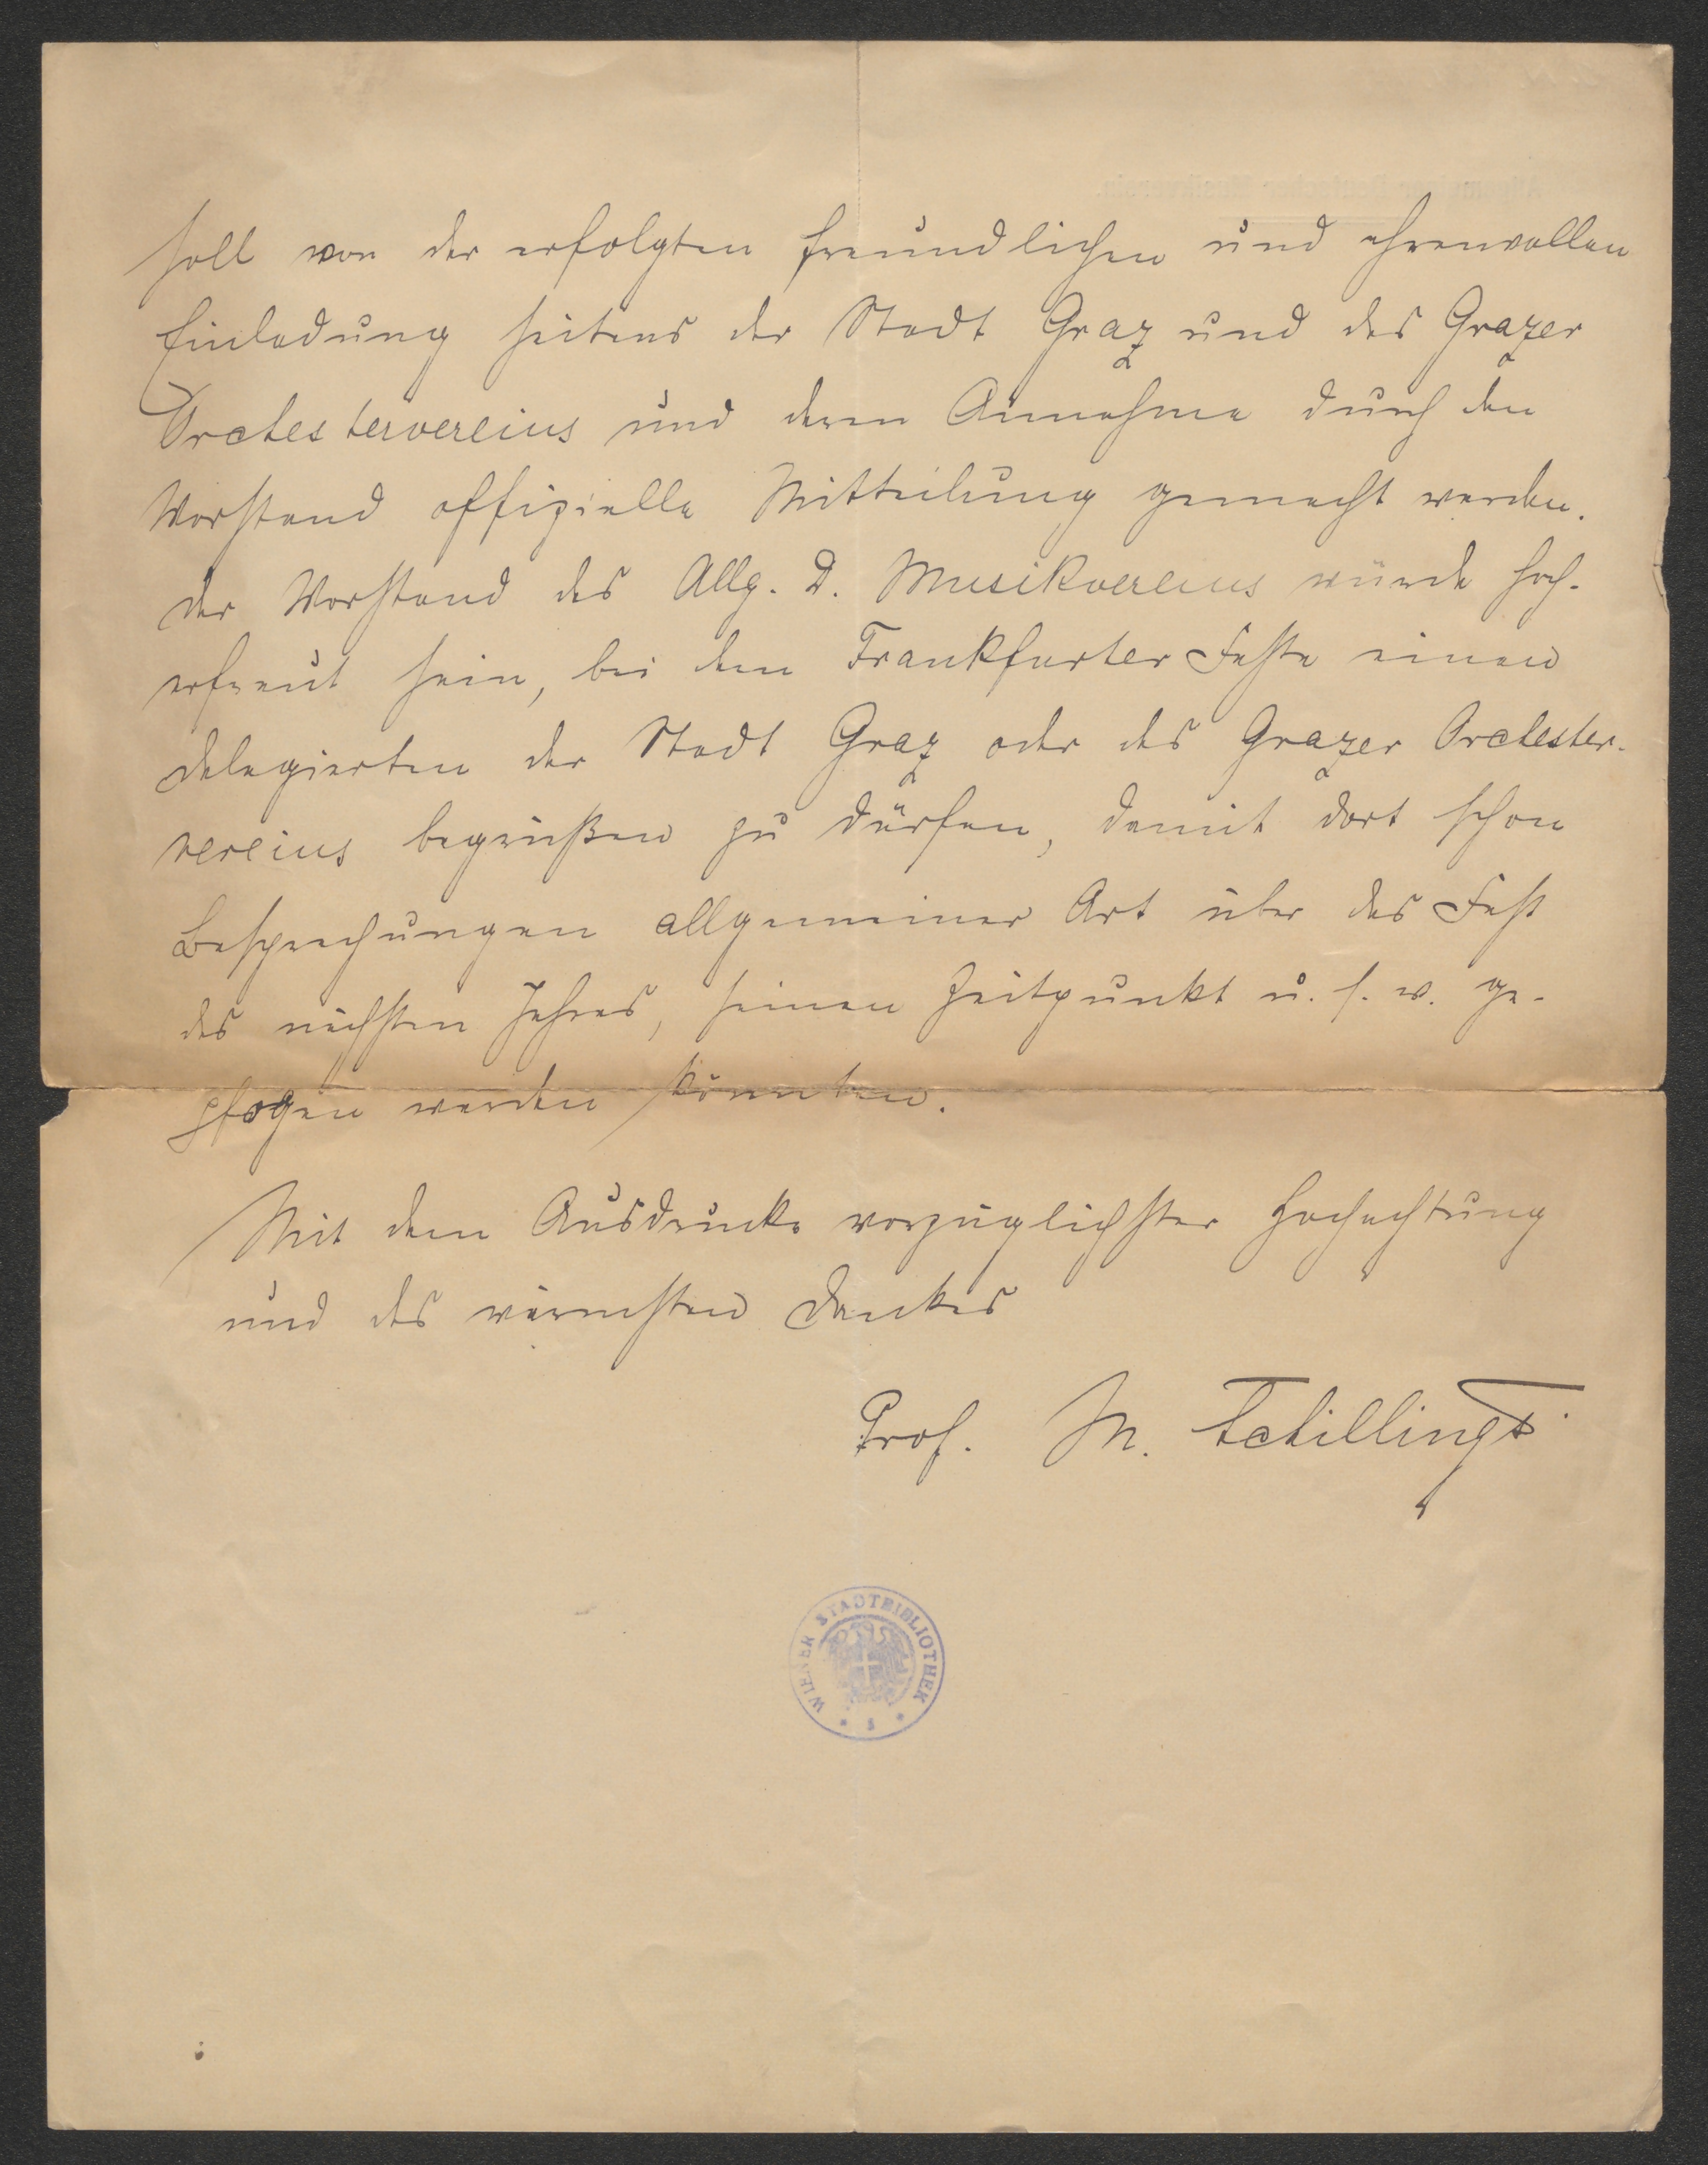 soll von der erfolgten freundlichen und ehrenvollen
Einladung seitens der Stadt Graz und des Grazer
Orchestervereins und deren Annahme durch den
Vorstand offizielle Mitteilung gemacht werden.
Der Vorstand des Allg. D. Musikvereins würde hoch-
erfreut sein, bei dem Frankfurter Feste einen
Delegierten der Stadt Graz oder des Grazer Orchester-
vereins begrüßen zu dürfen, damit dort schon
Besprechungen allgemeiner Art über das Fest
des nächsten Jahres, seinen Zeitpunkt u. s. w. ge-
pflogen werden könnten.
Mit dem Ausdrucke vorzüglichster Hochachtung
und des wärmsten Dankes
Prof. M. Schillings
WIENER STADTBIBLIOTHEK